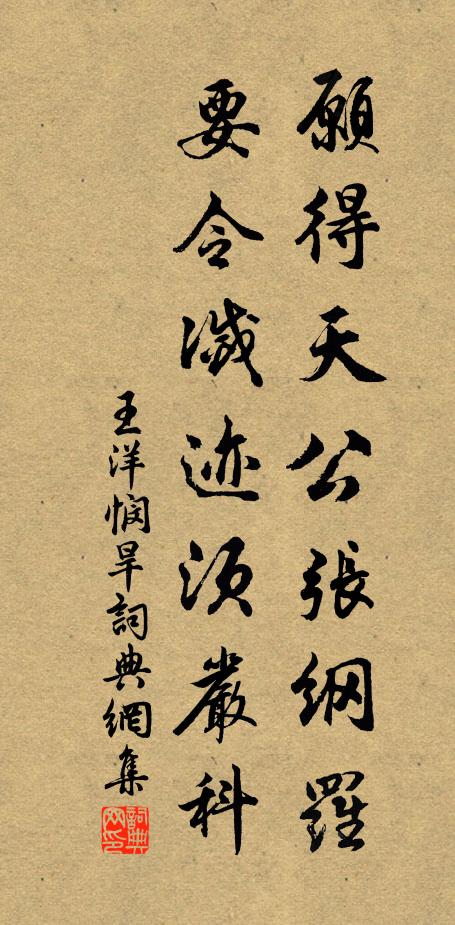 願得天公張綱羅
要令滅迹須嚴科
王洋憫旱詞典網集
詞典網印